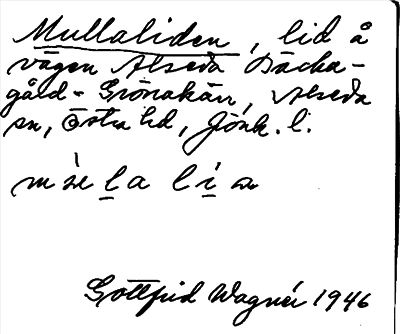 Mullaliden, lid å
vägen Alseda Backa-
gård - Grönakärr, Alseda
sn, Östra hd, Jönk. l.
Gottfrid Wagnér 1946